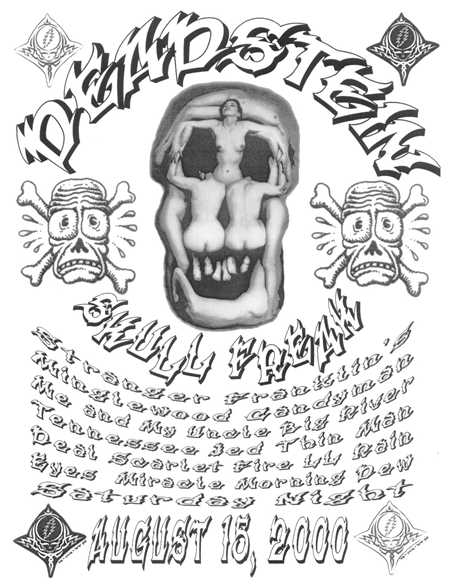 DEADSTEIN
SKULL FREAK
Stranger Franklin's
Minglewood Candyman
Me and My Uncle Big River
Tennessee Jed Thin Man
Deal Scarlet Fire LL Rain
Eyes Miracle Morning Dew
Saturday Night
AUGUST 15, 2000